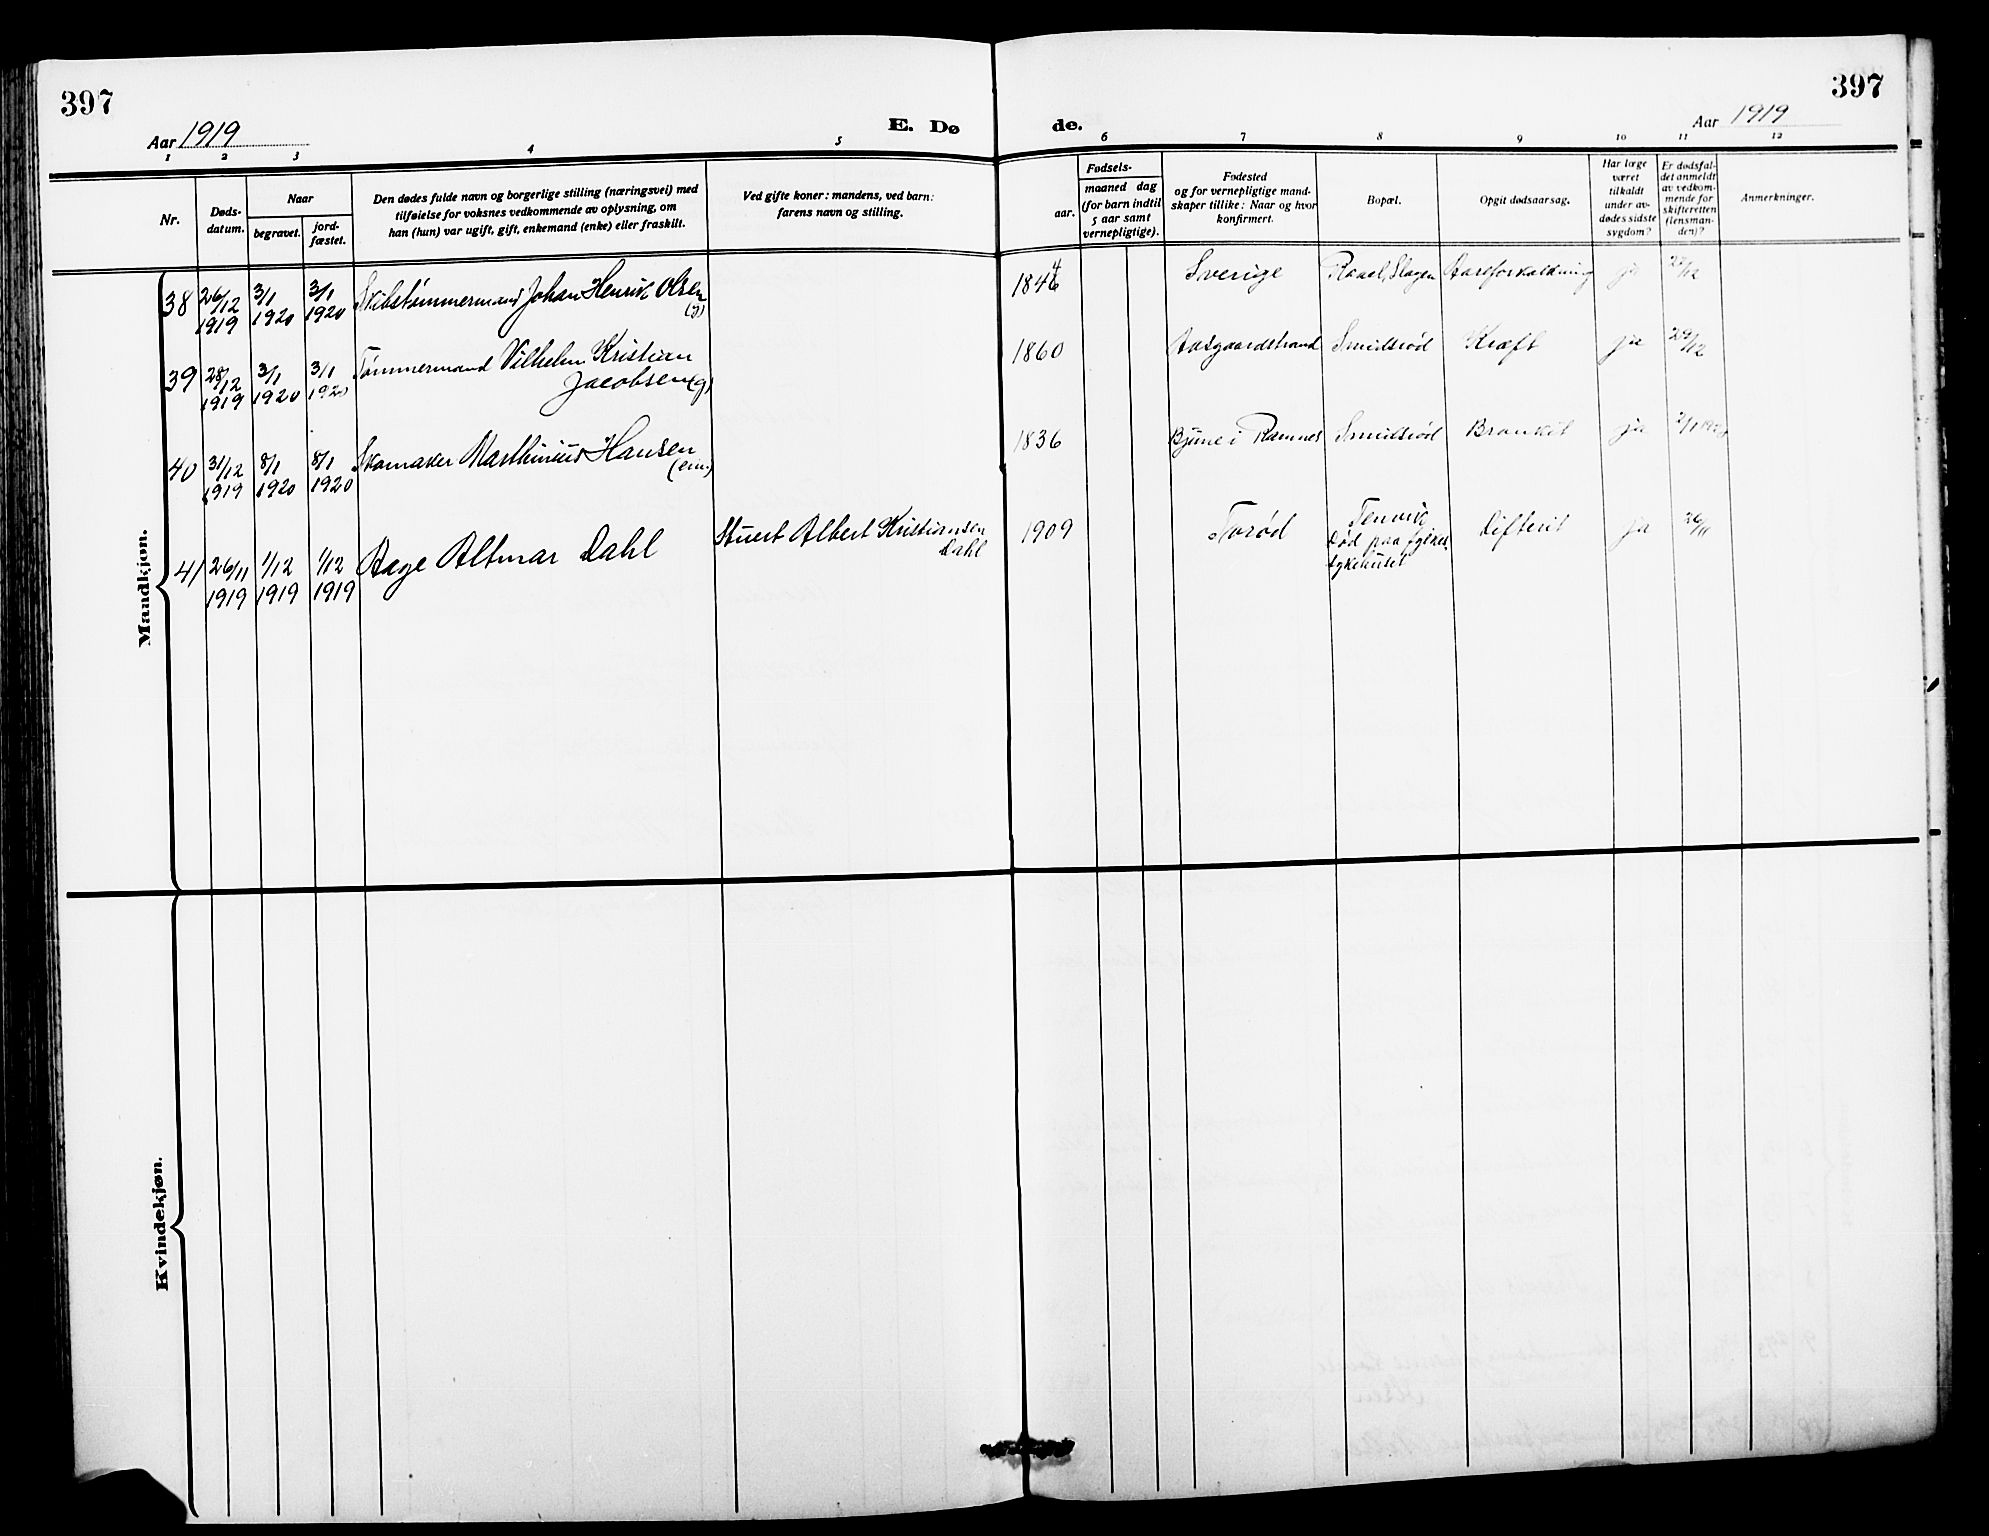 397
397
Aar 1919
E. Dø
de.
Aar 1919
1 2 3 4 5 6 7 8 9 10 11 12
Nr.
Døds-
datum.
Naar
begravet.
jord-
fæstet.
Den dødes fulde navn og borgerlige stilling (næringsvei) med
tilføielse for voksnes vedkommende av oplysning, om
han (hun) var ugift, gift, enkemand (enke) eller fraskilt.
Ved gifte koner: mandens, ved barn:
farens navn og stilling.
Fødsels-
aar.
maaned dag
(for barn indtil
5 aar samt
vernepligtige).
Fødested
og for vernepligtige mand-
skaper tillike: Naar og hvor
konfirmert.
Bopæl.
Opgit dødsaarsag.
Har læge
været
tilkaldt
under av-
dødes sidste
sygdom?
Er dødsfal-
det anmeldt
av vedkom-
mende for
skifteretten
(lensman-
den)?
Anmerkninger.
Mandkjøn.
38 26/12 1919 3/1 1920 3/1 1920 Skibstømmermand Johan Henrik Olsen
(g) 1844 Sverige Raael, Slagen Aareforkalkning ja 27/12
39 28/12 1919 3/1 1920 3/1 1920 Tømmermand Vilhelm Kristian
Jacobsen (g) 1860 Aasgaardstrand Smidsrød Kræft ja 29/12
40 31/12 1919 8/1 1920 8/1 1920 Skomaker Marthinius Hansen
(em) 1836 Bjune i Ramnes Smidsrød Bronkit ja 2/1 1920
41 26/11 1919 1/12 1919 1/12 1919 Aage Altmar Dahl Stuert Albert Kristiansen
Dahl 1909 Torød Tenvik
Død paa fylkes
sykehuset Difterit ja 26/11
Kvindekjøn.